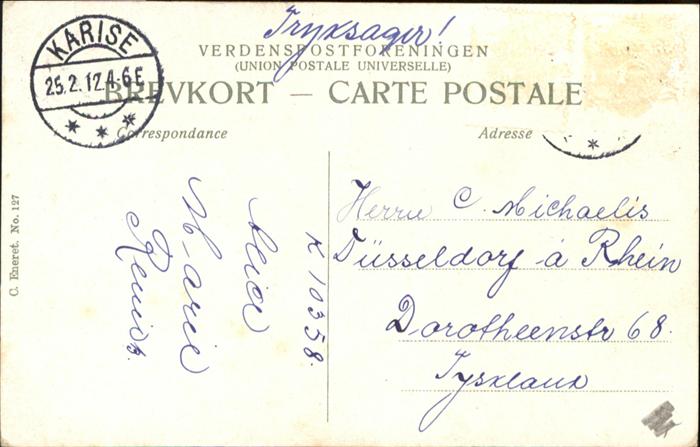 Tryksager!
VERDENSPOSTFORENINGEN
(UNION POSTALE UNIVERSELLE)
BREVKORT — CARTE POSTALE
Correspondance
Adresse
KARISE
25.2.12.4-6E
Herrn C. Michaelis
Düsseldorf á Rhein
Dorotheenstr 68.
Tyskland
K 10358.
Marie
C. Eneret. No. 127